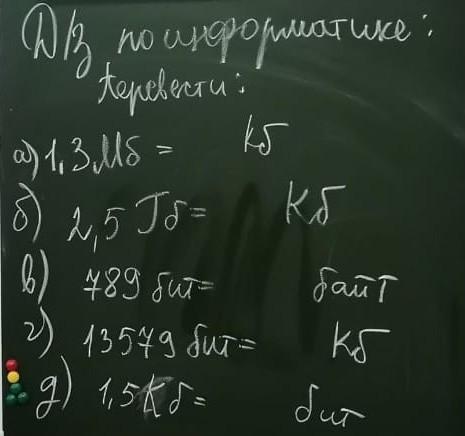 Д/З по информатике:
Перевести:
а) 1,3 Мб = Кб
б) 2,5 Гб = Кб
в) 789 бит = байт
г) 13579 бит = Кб
д) 1,5 Кб = бит